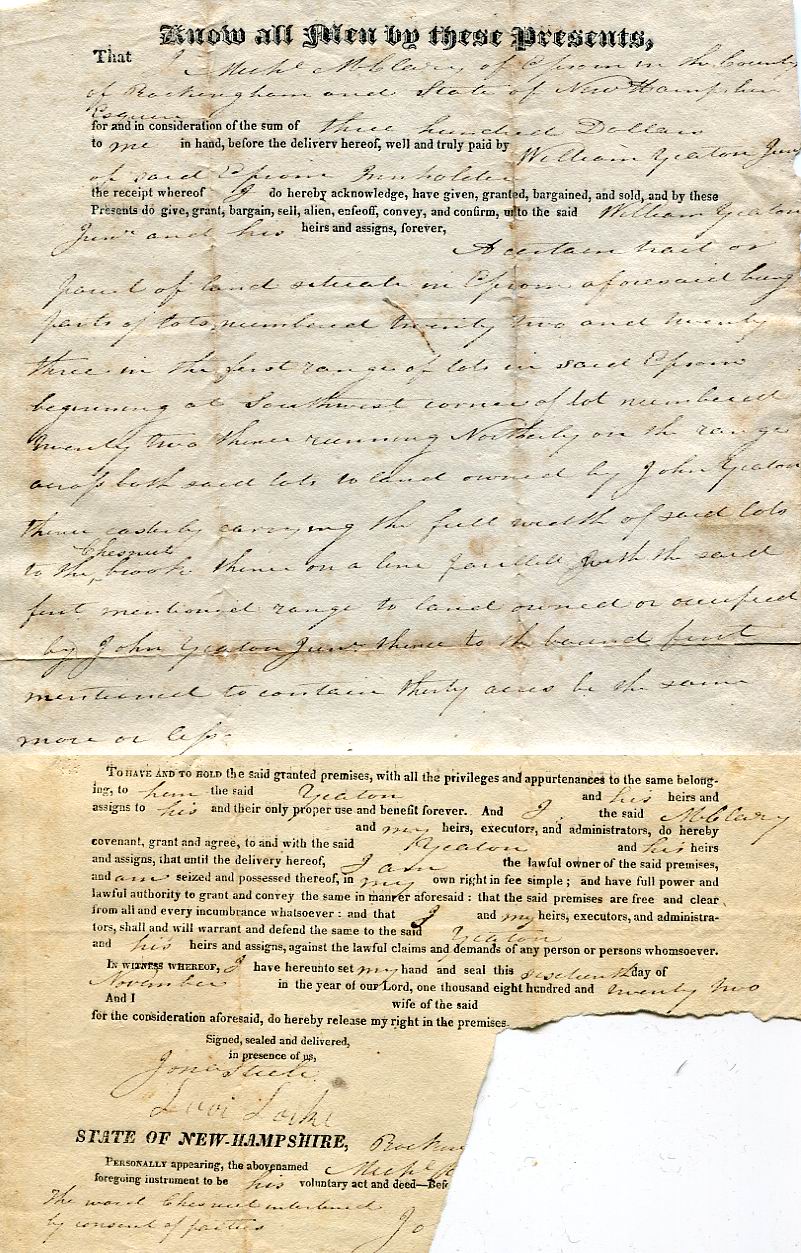 Know all Men by these Presents,
That I Michl McClary of Epsom in the County
of Rockingham and State of New Hampshire
Esquire
for and in consideration of the sum of three hundred Dollars
to me in hand, before the delivery hereof, well and truly paid by William Yeaton Junr
of said Epsom Innholder
the receipt whereof I do hereby acknowledge, have given, granted, bargained, and sold, and by these
Presents do give, grant, bargain, sell, alien, enfeoff, convey, and confirm, unto the said William Yeaton
Junr and his heirs and assigns, forever,
A certain tract or
parcel of land situate in Epsom aforesaid being
parts of lots numbered twenty two and twenty
three in the first range of lots in said Epsom
beginning at Southwest corner of lot numbered
twenty two thence running Northerly on the range
across both said lots to land owned by John Yeaton
thence easterly carrying the full width of said lots
Chesnut
to the brook thence on a line parallel with the said
first mentioned range to land owned or occupied
by John Yeaton Junr thence to the bound first
mentioned to contain thirty acres be the same
more or less.
To have and to hold the said granted premises, with all the privileges and appurtenances to the same belong-
ing, to him the said Yeaton and his heirs and
assigns to his and their only proper use and benefit forever. And I the said McClary
and my heirs, executors, and administrators, do hereby
covenant, grant and agree, to and with the said Yeaton and his heirs
and assigns, that until the delivery hereof, I am the lawful owner of the said premises,
and am seized and possessed thereof, in my own right in fee simple; and have full power and
lawful authority to grant and convey the same in manner aforesaid: that the said premises are free and clear
from all and every incumbrance whatsoever: and that I and my heirs, executors, and administra-
tors, shall and will warrant and defend the same to the said Yeaton
and his heirs and assigns, against the lawful claims and demands of any person or persons whomsoever.
In witness whereof, I have hereunto set my hand and seal this sixteenth day of
November in the year of our Lord, one thousand eight hundred and twenty two
And I wife of the said
for the consideration aforesaid, do hereby release my right in the premises.
Signed, sealed and delivered,
in presence of us,
Jona Steele
Levi Locke
STATE OF NEW-HAMPSHIRE, Rockin
Personally appearing, the abovenamed Michl
foregoing instrument to be his voluntary act and deed—Befo
The word Chesnut interlined
by consent of parties
Jo